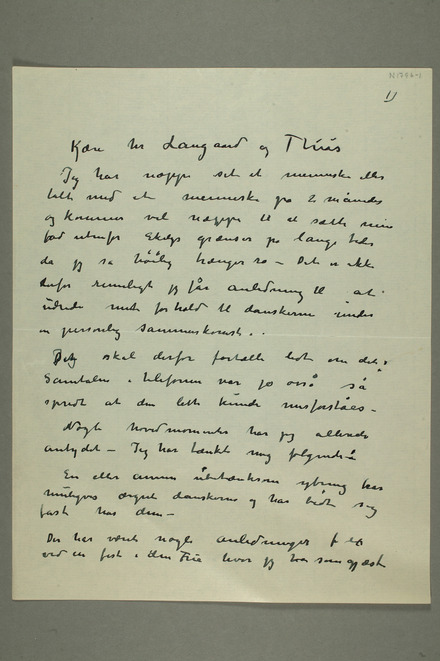 N1744-1
1)
Kære hr Langaard og Thiis
Jeg har neppe set et menneske eller
talt med et menneske på 2 måneder
og kommer vel neppe til at sætte min
fod utenfor Ekelys grænser på lange tider
da jeg så hårlig trænger ro – Det er ikke
derfor rimeligt jeg får anledning til at
udrede mit forhold til danskerne under
en personlig sammenkomst.
Jeg skal derfor fortælle lidt om det.
Samtalen i telefonen var jo også så
spredt at den lett kunde misforståes –
Nogle hovedmomenter har jeg allerede
antydet – Jeg har tænkt mig følgende:
En eller anden ubetænksom ytring kan
muligens ærgret danskerne og har bidt sig
fast hos dem –
Der har været nogle anledninger f ex
ved en fest i den Frie hvor jeg var som gjæst